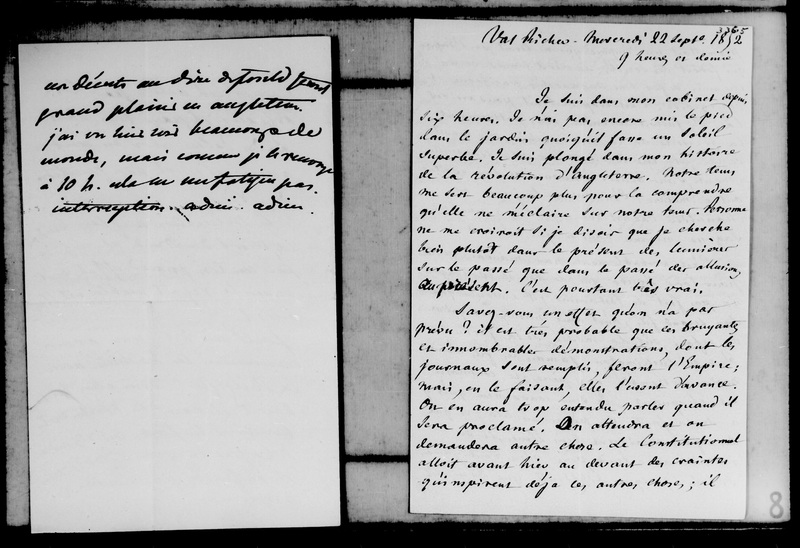 un décrets au dire de
grand plaisir en angleterre.
j'ai vu hier soir beaucoup de
monde, mais comme je le renvoye
à 10 h. cela ne me fatigue pas.
interruption. adieu. adieu.
3365
Val Richer - Mercredi 22 Septe 1852
9 heures et demie
Je suis dans mon cabinet depuis
six heures. Je n'ai pas encore mis le pied
dans le jardin quoiqu'il fasse un soleil
superbe. Je suis plongé dans mon histoire
de la révolution d'Angleterre. Notre tems
me sert beaucoup plus pour la comprendre
qu'elle ne m'éclaire sur notre tems. Personne
ne me croiroit si je disois que je cherche
bien plutôt dans le présent des lumières
sur le passé que dans le passé des allusions
au présent. C'est pourtant très vrai.
Savez-vous un effet qu'on n'a pas
prévu ? il est très probable que ces bruyantes
et innombrables démonstrations, dont les
journaux sont remplis, feront l'Empire ;
mais, en le faisant, elles l'usent d'avance.
On en aura trop entendu parler quand il
sera proclamé. On attendra et on
demandera autre chose. Le Constitutionnel
alloit avant hier au devant des craintes
qu'inspirent déja ces autres choses ; il
8